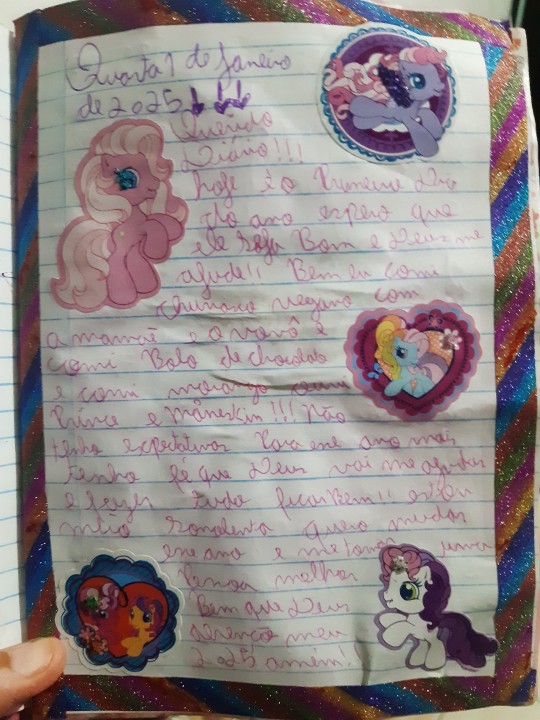 Quarta 1 de Janeiro
de 2025
Querido
Diário!!!
hoje é o Primeiro Dia
do ano espero que
ele seja Bom e Deus me
ajude!! Bem eu comi
churrasco vegano com
a mamãe e o vovô e
comi Bolo de chocolate
e comi morango
Prince e Måneskin!!! Não
tenho expectativas Para ene ano mais
tenho fé que Deus vai me ajudar
e fazer tudo ficar Bem!! estou
meio sonolenta quero mudar
ene ano e me tornar uma
Pessoa melhor
Bem que Deus
abençoe meu
2025 amém!!